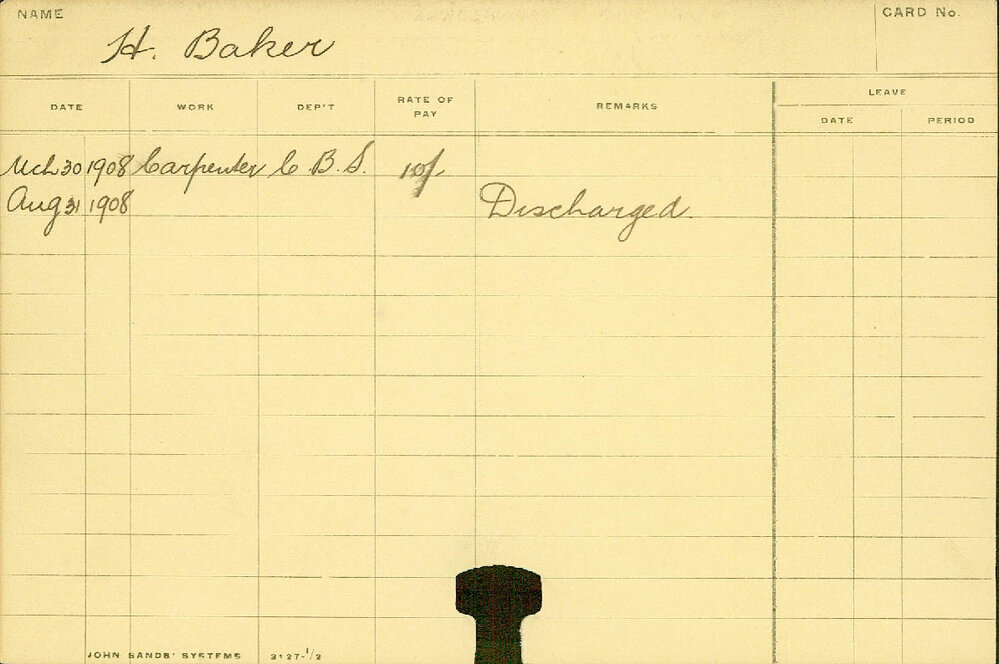 NAME
H. Baker
CARD No.
DATE WORK DEP'T RATE OF PAY REMARKS LEAVE
DATE PERIOD
Mch 30 1908 Carpenter C. B. S. 10/-
Aug 31 1908 Discharged.
JOHN SANDS' SYSTEMS 3127-1/2